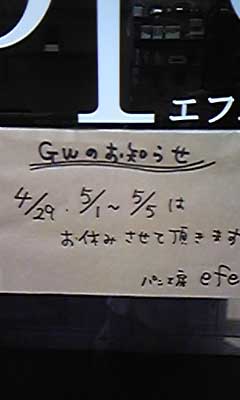 エフ
GWのお知らせ
4/29. 5/1〜5/5は
お休みさせて頂きます
パン工房 efe